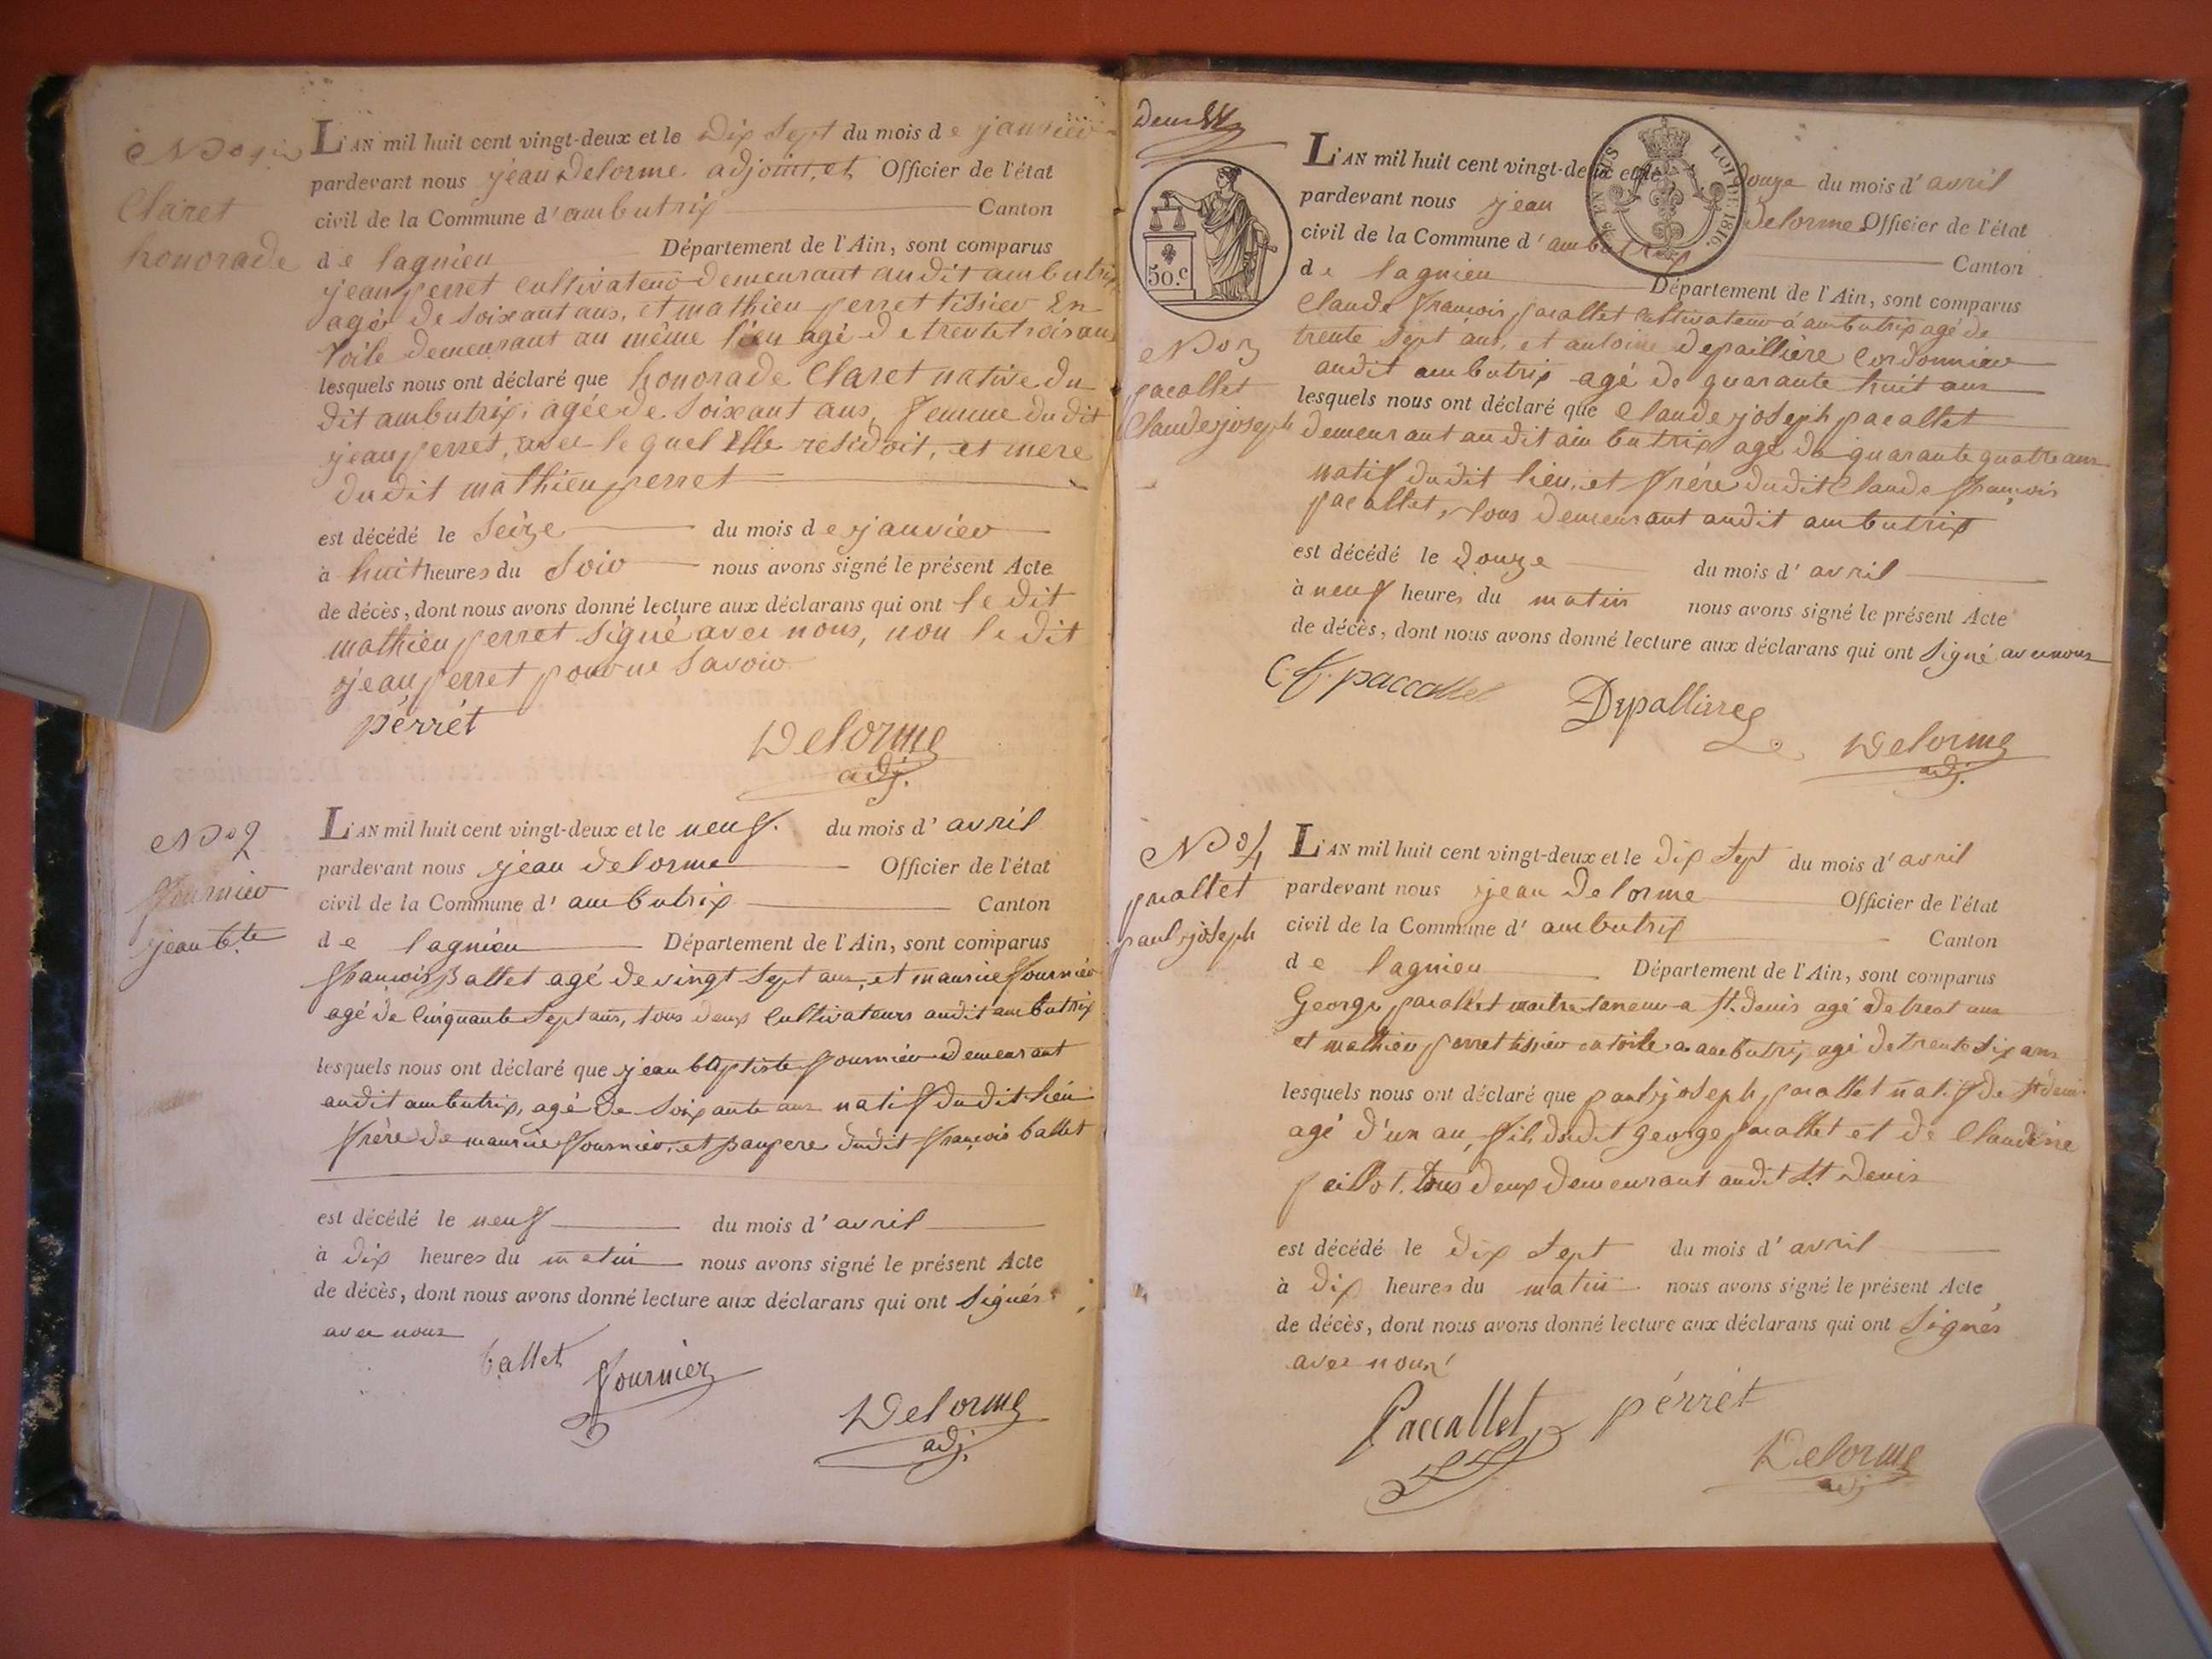 Claret
honorade
L'AN mil huit cent vingt-deux et le dix sept du mois de janvier
pardevant nous jean Delorme adjoint, et Officier de l'état
civil de la Commune d'ambutrix Canton
de lagnieu Département de l'Ain, sont comparus
jean perret cultivateur demeurant audit ambutrix
agé de soixant ans, et mathieu perret tissier En
toile demeurant au même lieu agé de trente trois ans
lesquels nous ont déclaré que honorade Claret native du
dit ambutrix, agée de soixant ans, femme du dit
jean perret, avec le quel Elle residoit, et mere
du dit mathieu perret
est décédé le seize du mois de janvier
à huit heures du soir nous avons signé le présent Acte
de décès, dont nous avons donné lecture aux déclarans qui ont le dit
mathieu perret signé avec nous, non le dit
jean perret pour ne savoir
pérrét
Delorme
adj.
No 2
fournier
jean bte
L'AN mil huit cent vingt-deux et le neuf. du mois d'avril
pardevant nous jean delorme Officier de l'état
civil de la Commune d'ambutrix Canton
de lagnieu Département de l'Ain, sont comparus
françois Ballet agé de vingt sept ans, et maurice fournier
agé de cinquante sept ans, tous deux cultivateurs audit ambutrix
lesquels nous ont déclaré que jean baptiste fournier demeurant
audit ambutrix, agé de soixante ans natif du dit lieu
frère de maurice fournier, et paupere dudit françois ballet
est décédé le neuf du mois d'avril
à dix heures du matin nous avons signé le présent Acte
de décès, dont nous avons donné lecture aux déclarans qui ont signés
avec nous
ballet
fournier
Delorme
adj.
50.c
LOI DE 1816.
No 3
pacallet
Claude joseph
L'AN mil huit cent vingt-deux et le douze du mois d'avril
pardevant nous jean Delorme Officier de l'état
civil de la Commune d'ambutrix Canton
de lagnieu Département de l'Ain, sont comparus
Claude françois pacallet cultivateur à ambutrix agé de
trente sept ans, et antoine Depaillière Cordonnier
audit ambutrix agé de quarante huit ans
lesquels nous ont déclaré que Claude joseph pacallet
demeurant audit ambutrix agé de quarante quatre ans
natif dudit lieu, et frère dudit Claude françois
pacallet, tous demeurant audit ambutrix
est décédé le douze du mois d'avril
à neuf heures du matin nous avons signé le présent Acte
de décès, dont nous avons donné lecture aux déclarans qui ont signé avec nous
C f. paccallet
Depallirre
Delorme
adj.
No 4
pacallet
paul joseph
L'AN mil huit cent vingt-deux et le dix sept du mois d'avril
pardevant nous jean Delorme Officier de l'état
civil de la Commune d'ambutrix Canton
de lagnieu Département de l'Ain, sont comparus
George pacallet maitre taneur a St. denis agé de trent ans
et mathieu perret tissier en toile a ambutrix agé de trente six ans
lesquels nous ont déclaré que paul joseph pacallet natif de St denis
agé d'un an, fils dudit george pacallet et de Claudine
peillot. tous deux demeurant audit St. Denis
est décédé le dix sept du mois d'avril
à dix heures du matin nous avons signé le présent Acte
de décès, dont nous avons donné lecture aux déclarans qui ont signés
avec nous
Paccallet
pérrét
Delorme
adj